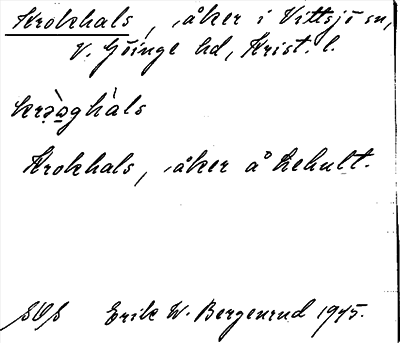 Krokhals, åker i Vittsjö sn,
V. Göinge hd, Krist. l.
Krokhals, åker å Lehult.
SOS Erik W. Bergenrud 1945.